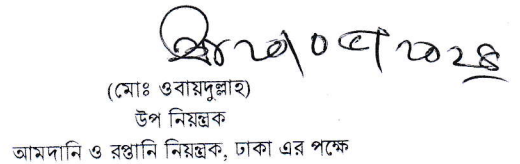 (মোঃ ওবায়দুল্লাহ)
উপ নিয়ন্ত্রক
আমদানি ও রপ্তানি নিয়ন্ত্রক, ঢাকা এর পক্ষে